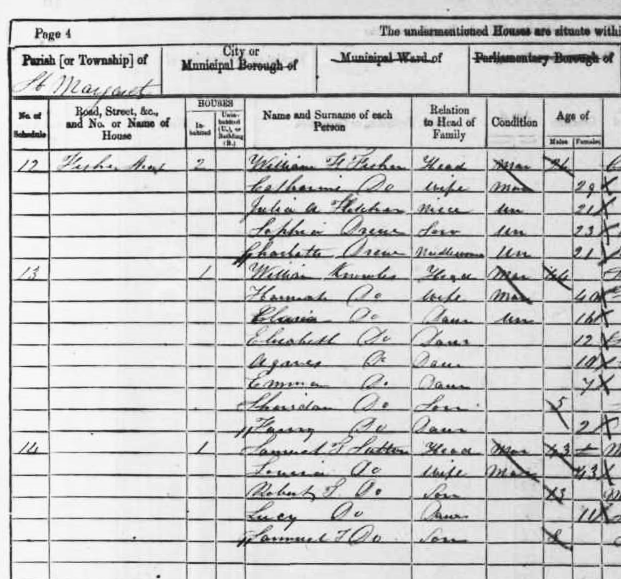 Page 4 The undermentioned Houses are situate withi
Parish [or Township] of City or Municipal Borough of Municipal Ward of Parliamentary Borough of
St Margaret
No. of Schedule Road, Street, &c., and No. or Name of House HOUSES Inhabited Uninhabited (U.), or Building (B.) Name and Surname of each Person Relation to Head of Family Condition Age of Males Females
12 Fisher 2 William H Fisher Head Mar
Catharine Do Wife Mar 29
Julia A Fletcher Niece Un 21
Sophia Un 23
Charlotte Un 21
13 1 William Knowles Head Mar 44
Hannah Do Wife Mar 40
Do Daur Un 16
Elizabeth Do Daur 12
Agnes Do Daur 10
Emma Do Daur 7
Sheridan Do Son 5
Fanny Do Daur 2
14 1 Samuel F Sutton Head Mar 43
Louisa Do Wife Mar 43
Robert F. Do Son 13
Lucy Do Daur 11
Samuel F Do Son 8